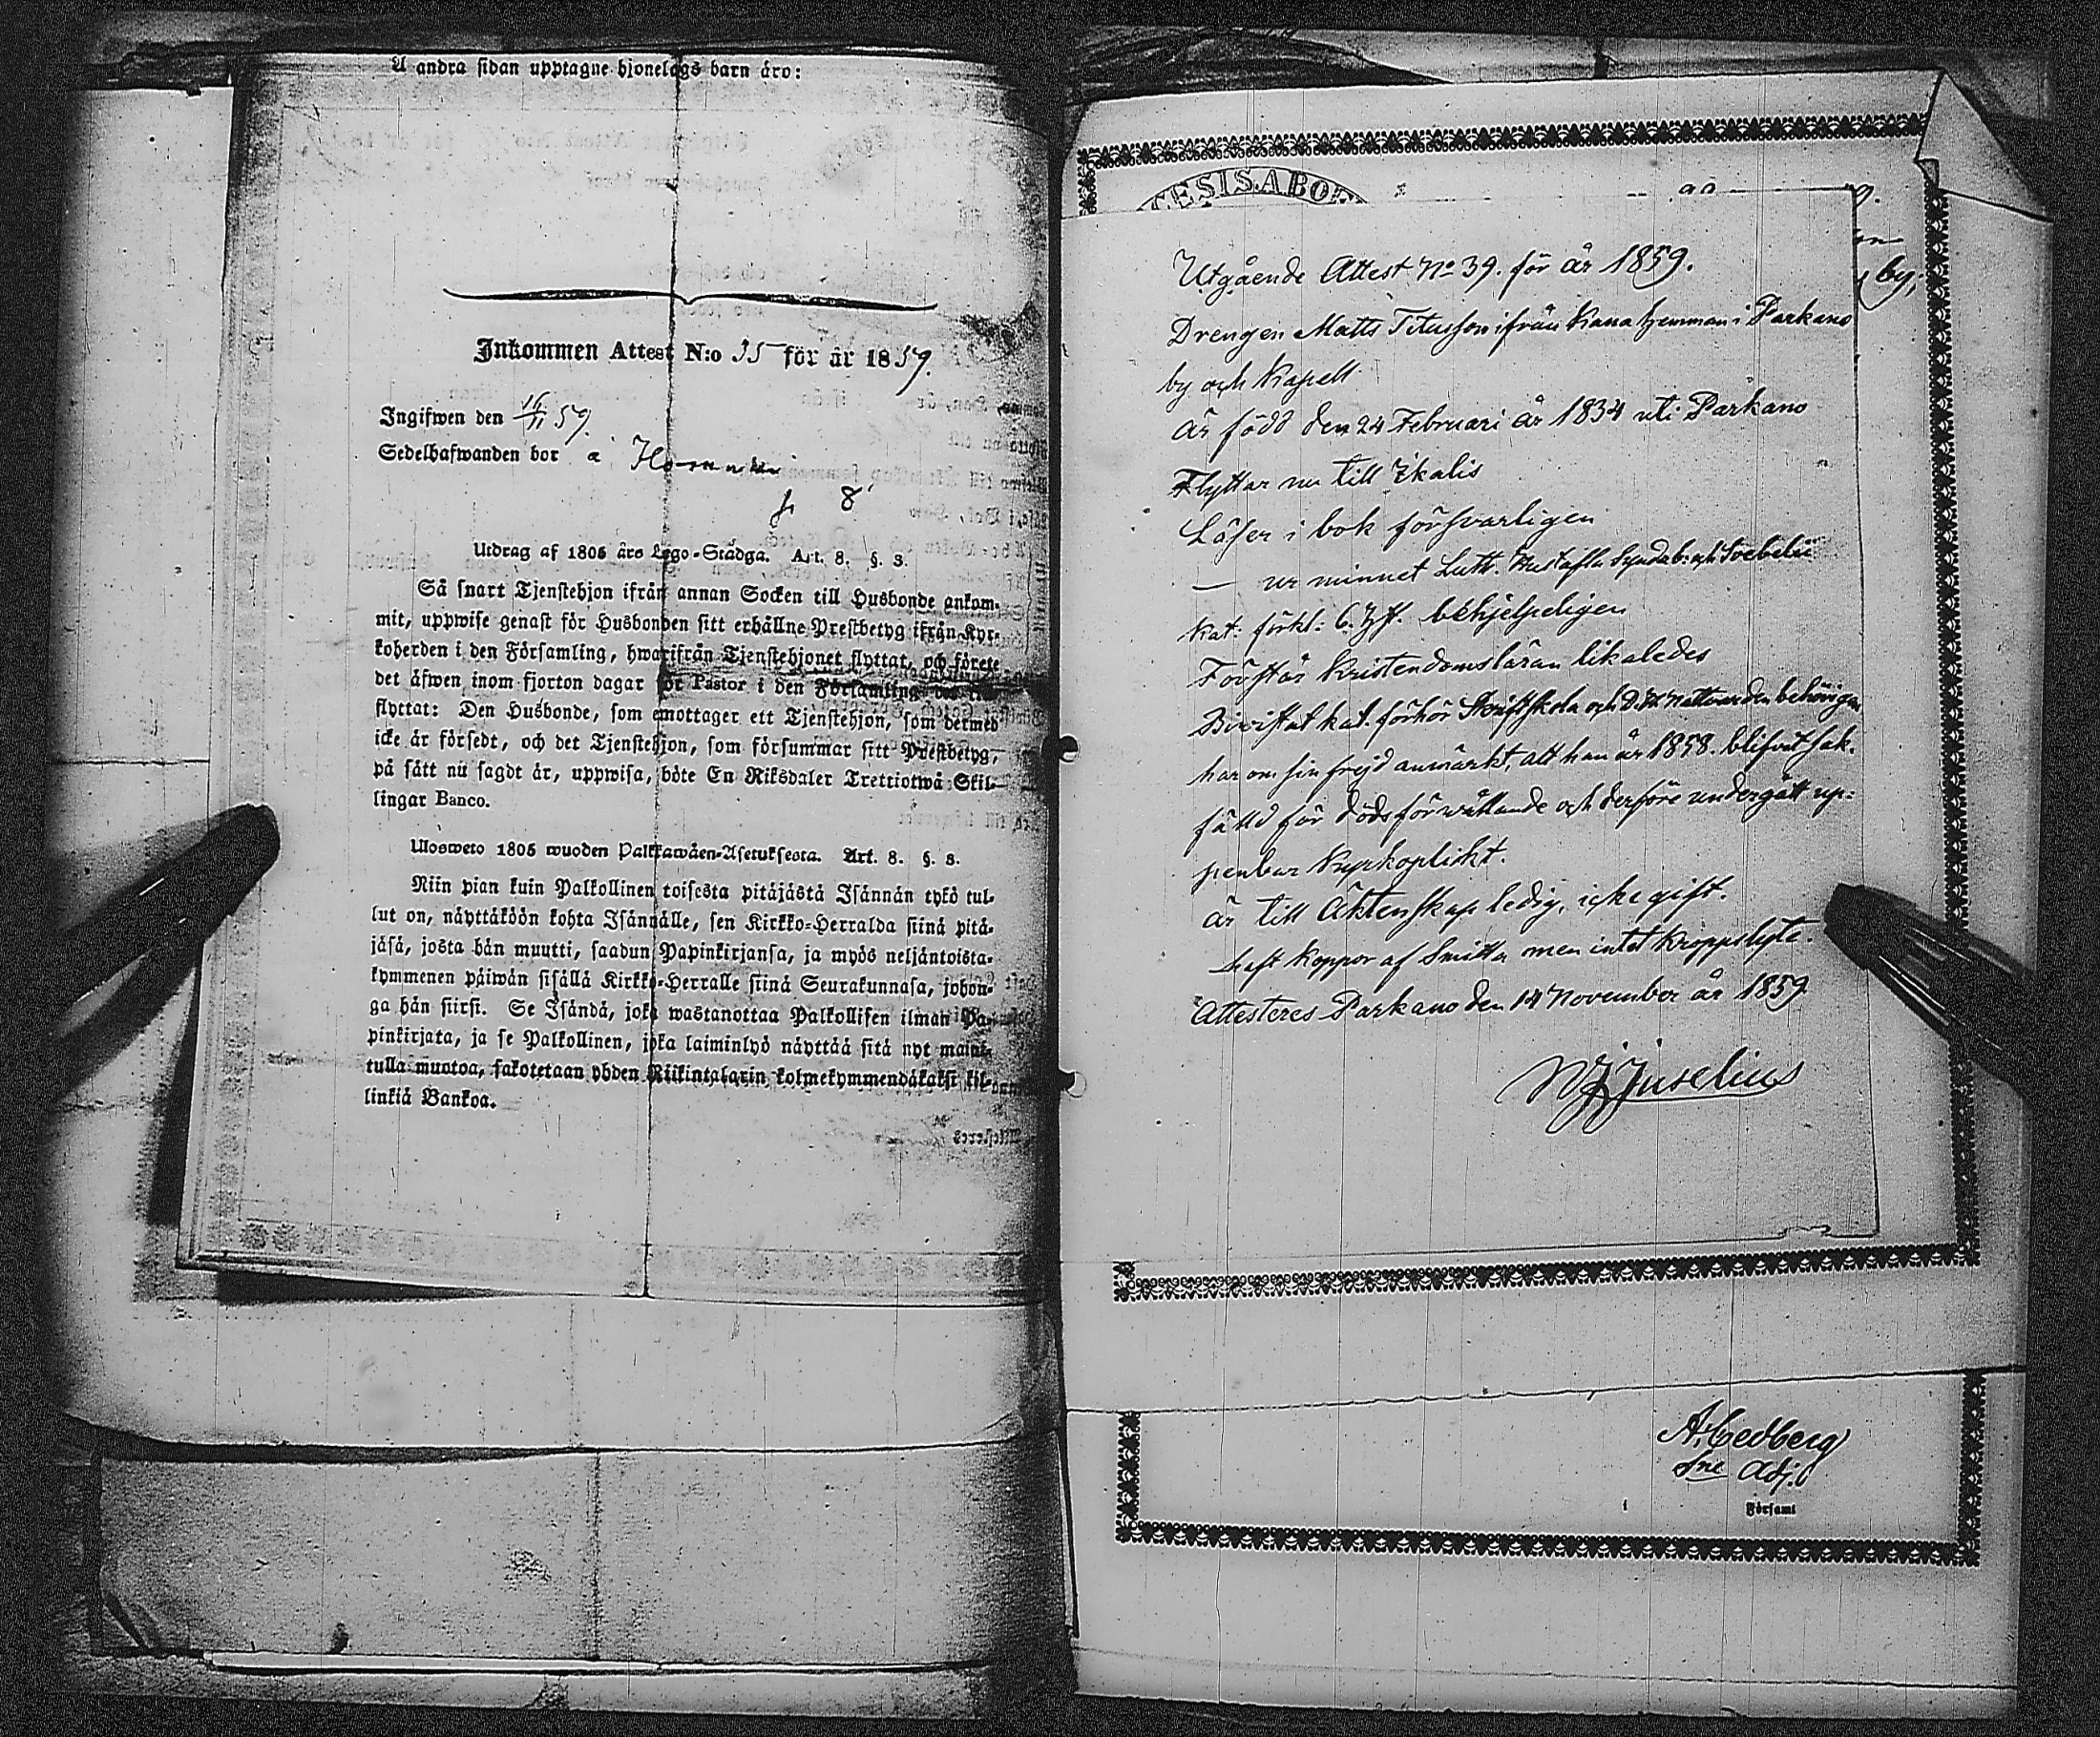 A andra sidan upptagne hjonelags barn äro:
Inkommen Attest N:o 35 för år 1859.
Ingifwen den 16/11 59.
Sedelhafwanden bor a
f. 8
Utdrag af 1805 års Lego-Stadga. Art. 8. §. 3.
Så snart Tjenstehjon ifrån annan Socken till Husbonde ankom-
mit, uppwise genast för Husbonden sitt erhållne Prestbetyg ifrån Kyr-
koherden i den Församling, hwarifrån Tjenstehjonet flyttat, och förete
det äfwen inom fjorton dagar för Pastor i den Församling
flyttat: Den Husbonde, som emottager ett Tjenstehjon, som dermed
icke är försedt, och det Tjenstehjon, som försummar sitt Prestbetyg,
på sätt nu sagdt är, uppwisa, böte En Riksdaler Trettiotwå Skil-
lingar Banco.
Ulosweto 1805 wuoden Palkkawäen-Asetuksesta. Art. 8. §. 3.
Niin pian kuin Palkollinen toisesta pitäjästä Isännän tykö tul-
lut on, näyttäköön kohta Isännälle, sen Kirkko-Herralda siinä pitä-
jäsä, josta hän muutti, saadun Papinkirjansa, ja myös neljäntoista-
kymmenen päiwän sisällä Kirkko-Herralle siinä Seurakunnasa, johon-
ga hän siirsi. Se Isändä, joka wastanottaa Palkollisen ilman Pa-
pinkirjata, ja se Palkollinen, joka laiminlyö näyttää sitä nyt maini-
tulla muotoa, sakotetaan yhden Riikintalarin kolmekymmendäkaksi kil-
linkiä Bankoa.
Utgående Attest No 39. för år 1859.
Drengen Matts Titusson ifrån Kana hemman i Parkano
by och Kapell
är född den 24 Februari år 1834 uti Parkano
Flyttar nu till Ikalis
Läser i bok försvarligen
— ur minnet Luth. Hustafla Syndab: och Svebelii
Kat: förkl: behjelpeligen
Förstår Kristendomsläran likaledes
Bivistat kat. förhör Skriftskola och H. H. Nattvarden behörigen
har om sin frejd anmärkt, att han år 1858. blifvit sak-
fälld för dödsförvållande och derföre undergått up-
penbar Kyrkoplikt.
är till Äktenskap ledig, icke gift.
haft Koppor af Smitta men intet Kroppslyte.
Attesteres Parkano den 14 November år 1859
Juselius
by,
A. Cedberg
Adj.
i Församl